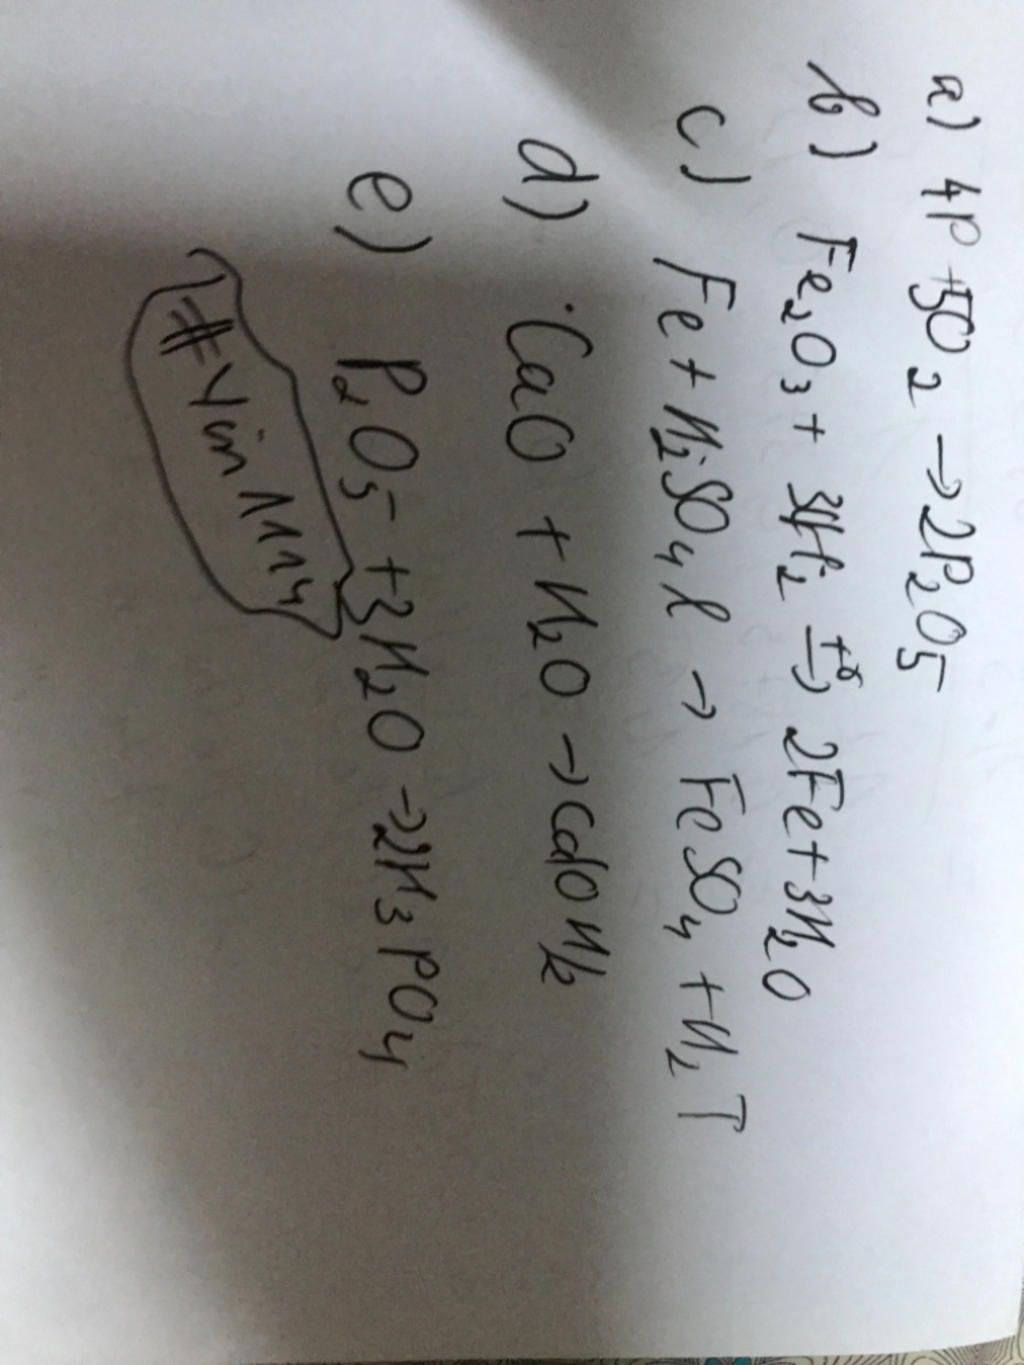 a) 4P + 5O2 → 2P2O5
b) Fe2O3 + 3H2 t° → 2Fe + 3H2O
c) Fe + H2SO4 l → FeSO4 + H2 T
d) CaO + H2O → CaOH2
e) P2O5 + 3H2O → 2H3PO4
#Yin1114